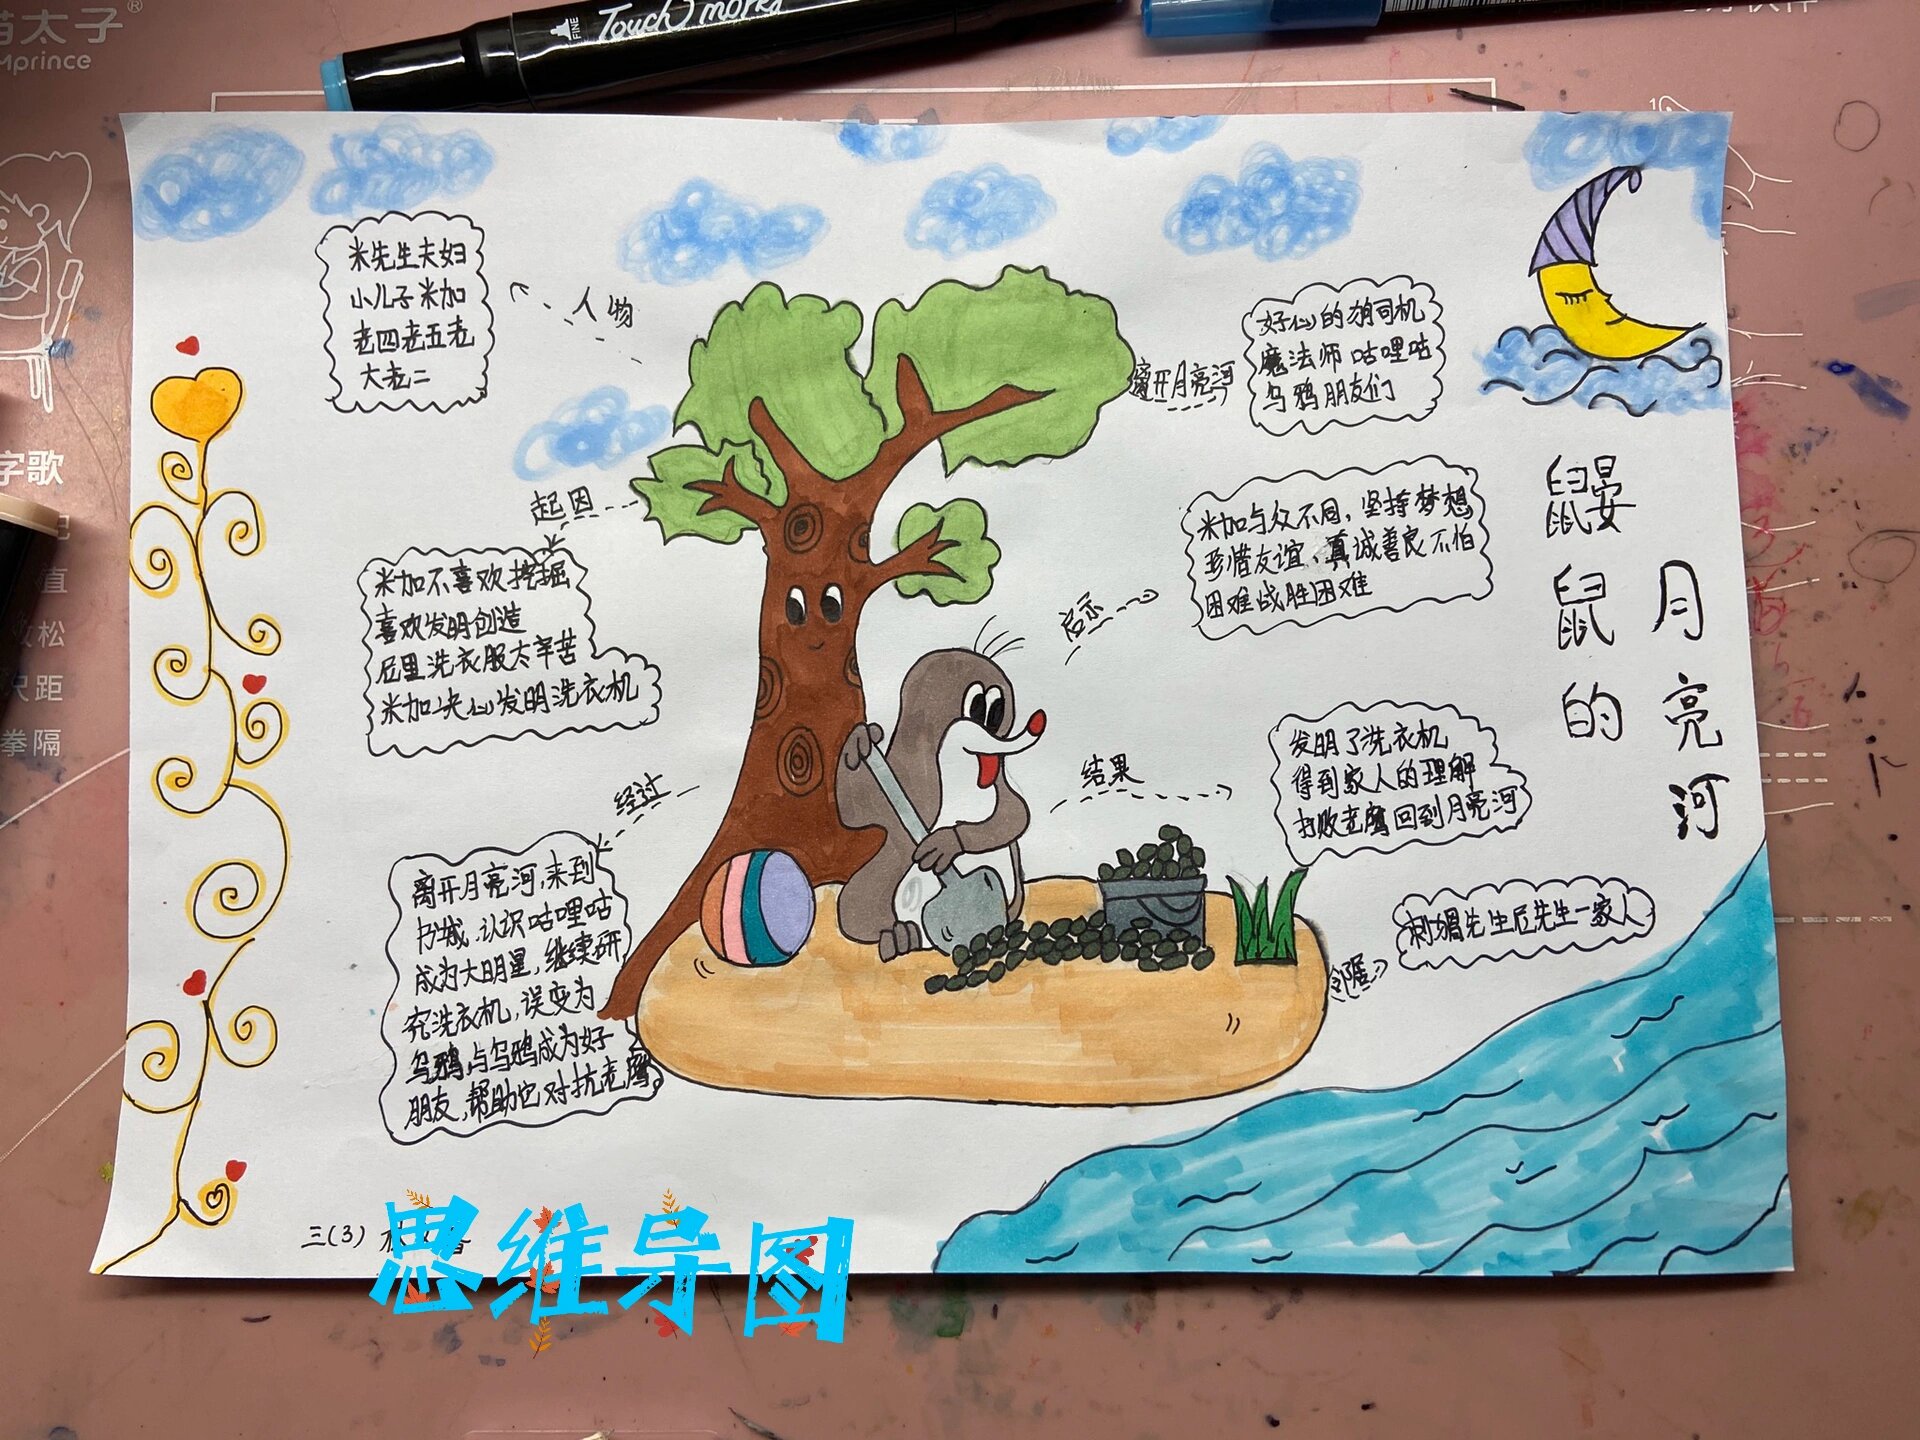 猫太子
Mprince
FINE
Touch mark
字歌
直
松
尺距
拳隔
米先生夫妇
小儿子米加
老四老五老
大老二
人物
起因
米加不喜欢挖掘
喜欢发明创造
尼里洗衣服太辛苦
米加决心发明洗衣机
经过
离开月亮河,来到
书城,认识咕哩咕
成为大明星,继续研
究洗衣机,误变为
乌鸦,与乌鸦成为好
朋友,帮助它对抗老鹰
离开月亮河
好心的胡司机
魔法师咕哩咕
乌鸦朋友们
启示
米加与众不同,坚持梦想
珍惜友谊、真诚善良不怕
困难战胜困难
结果
发明了洗衣机
得到家人的理解
打败老鹰回到月亮河
邻居
刺猬先生尼先生一家人
鼹鼠的
月亮河
三(3)
思维导图